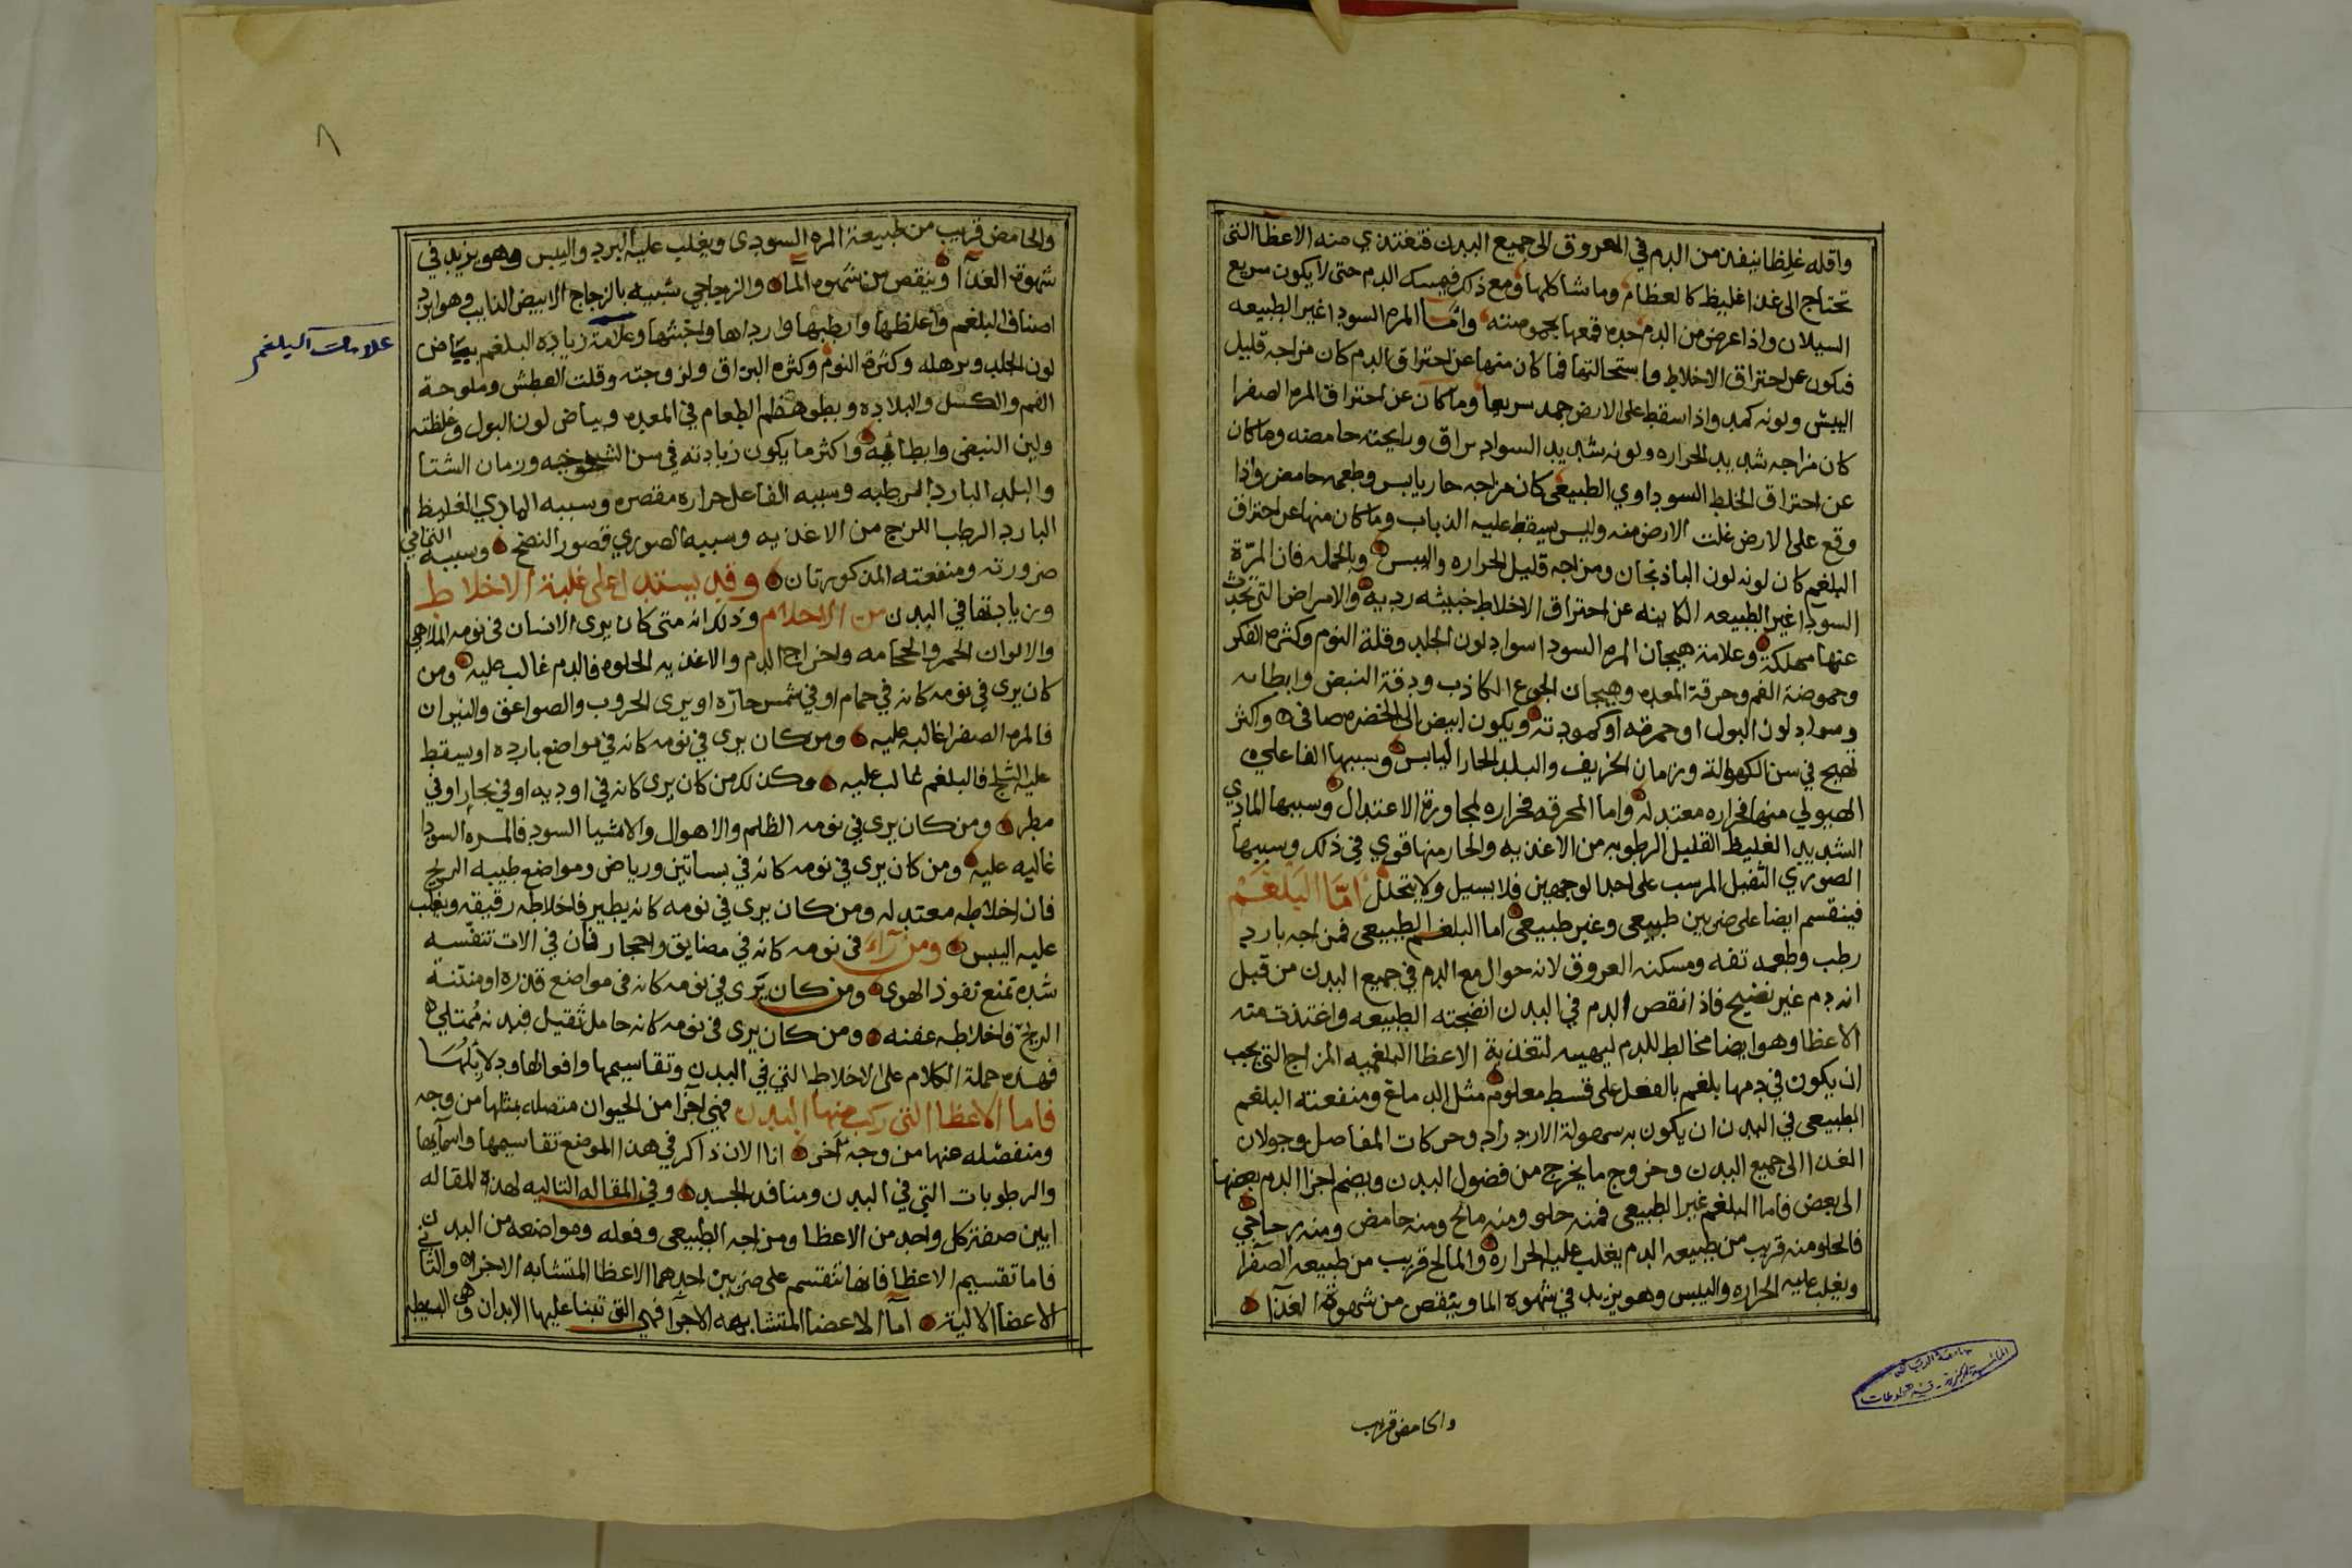 واقله غلظا ينفذ من الدم في العروق الى جميع البدن فتغتذي منه الاعظا التي
تحتاج الى غذا غليظ كالعظام وما شاكلها ومع ذلك فيمسك الدم حتى لا يكون سريع
السيلان واذا عرض من الدم حده قمعها بحموضته وامّا المره السودا غير الطبيعه
فيكون عن احتراق الاخلاط واستحالتها فما كان منها عن احتراق الدم كان مزاجه قليل
اليبس ولونه كمد واذا سقط على الارض جمد سريعا وما كان عن احتراق المره الصفرا
كان مزاجه شديد الحراره ولونه شديد السواد براق ورايحته حامضه وما كان
عن احتراق الخلط السوداوي الطبيعي كان مزاجه حار يابس وطعمه حامض واذا
وقع على الارض غلت الارض منه وليس يسقط عليه الذباب وما كان منها عن احتراق
البلغم كان لونه لون الباذنجان ومزاجه قليل الحراره واليبس وبالجمله فان المرّة
السودا غير الطبيعه الكاينه عن احتراق الاخلاط خبيثه رديه والامراض التي تحدث
عنها مهلكة وعلامة هيجان المره السودا سواد لون الجلد وقلة النوم وكثره الفكر
وحموضة الفم وحرقة المعده وهيجان الجوع الكاذب ودقة النبض وابطائه
وسواد لون البول او حمرته او كمودته ويكون ابيض الى الخضره صافي واكثر
تهيج في سن الكهولة وزمان الخريف والبلد الحار اليابس وسببها الفاعلي
الهيولي منها فحراره معتدله واما المحرقه فحراره لمجاوزة الاعتدال وسببها المادي
الشديد الغليظ القليل الرطوبه من الاغذيه والحار منها قوي في ذلك وسببها
الصوري الثفيل المرسب على احد الوجهين فلا يسيل ولا يتحلل امّا البَلغَمْ
فينقسم ايضا على ضربين طبيعي وغير طبيعي اما البلغم الطبيعي فمزاجه بارد
رطب وطعمه تفه ومسكنه العروق لانه جوال مع الدم في جميع البدن من قبل
انه دم غير نضيح فاذ انقص الدم في البدن انضجته الطبيعه واغتذت منه
الاعظا وهو ايضا مخالط للدم ليهييه لتغذية الاعظا البلغميه المزاج التي يجب
ان يكون في دمها بلغم بالفعل على قسط معلوم مثل الدماغ ومنفعته البلغم
الطبيعي في البدن ان يكون به سهولة الازدراد وحركات المفاصل وجولان
الغدا الى جميع البدن وخروج ما يخرج من فضول البدن ويضم اجزا الدم بعضها
الى بعض فاما البلغم غير الطبيعي فمنه حلو ومنه مالح ومنه حامض ومنه زجاجي
فالحلو منه قريب من طبيعه الدم يغلب عليه الحراره والمالح قريب من طبيعه الصفرا
ويغلب عليه الحراره واليبس وهو يزيد في شهوه الما وينقص من شهوة الغذآ
والحامض قريب
والحامض قريب من طبيعة المره السودى ويغلب عليه البرد واليبس وهو يزيد في
شهوة الغذآ وينقص من شهوه المآ والزجاجي شبيه بالزجاج الابيض الذايب وهو ابرد
اصناف البلغم واغلظها وارطبها وارداها واخبثها وعلامة زياده البلغم بياض
علامات البلغم
لون الجلد وترهله وكثرة النوم وكثره البزاق ولزوجته وقلت العطش وملوحة
الفم والكسل والبلاده وبطو هظم الطعام في المعده وبياض لون البول وغلظته
ولين النبض وابطائه واكثر ما يكون زيادته في سن الشيخوخيه وزمان الشتا
والبلد البارد الرطبه وسببه الفاعل حراره مقصره وسببه المادي الغليظ
البارد الرطب اللزج من الاغذيه وسببه الصوري قصور النضج وسببه التمامي
ضرورته ومنفعته المذكورتان وقد يستدل على غلبة الاخلاط
وزيادتها في البدن من الاحلام وذلك انه متى كان يرى الانسان في نومه الملاهي
والالوان الحمر والحجامه واخراج الدم والاغذيه الحلوه فالدم غالب عليه ومن
كان يرى في نومه كانه في حمام او في شمس حارّه او يرى الحروب والصواعق والنيران
فالمره الصفرا غالبه عليه ومن كان يرى في نومه كانه في مواضع بارده او يسقط
عليه الثلج فالبلغم غالب عليه وكذلك من كان يرى كانه في اوديه او في بحار او في
مطر ومن كان يرى في نومه الظلم والاهوال والاشيا السود فالمره السودا
غالبه عليه ومن كان يرى في نومه كانه في بساتين ورياض ومواضع طيبه الريح
فان اخلاطه معتدله ومن كان يرى في نومه كانه يطير فاخلاطه رقيقه ويغلب
عليه اليبس ومن رآء في نومه كانه في مضايق واحجار فان في الات تنفّسه
شدة تمنع نفوذ الهوى ومن كان يَرى في نومه كانه في مواضع قذره او منتنة
الريح فاخلاطه عفنه ومن كان يرى في نومه كانه حامل ثقيل فبدنه مُمتلي
فهذه جملة الكلام على الاخلاط التي في البدن وتقاسيمها وافعالها ودلايلها
فاما الاعظا التي ركب منها البدن فهي اجزا من الحيوان متصله بمثلها من وجه
ومنفصله عنها من وجه آخر انا الان ذاكر في هذا الموضع تقاسيمها واسمآيها
والرطوبات التي في البدن ومنافد الجسد وفي المقاله التاليه لهذه المقاله
ابين صفة كل واحد من الاعظا ومزاجه الطبيعي وفعله ومواضعه من البدن
فاما تقسيم الاعظا فانها تنقسم على ضربين احدهما الاعظا المتشابه الاجزا والثاني
الاعضا الالية امآ الاعضا المتشابهه الاجزا فهي التي تبنا عليها الابدان وهي البسيطه